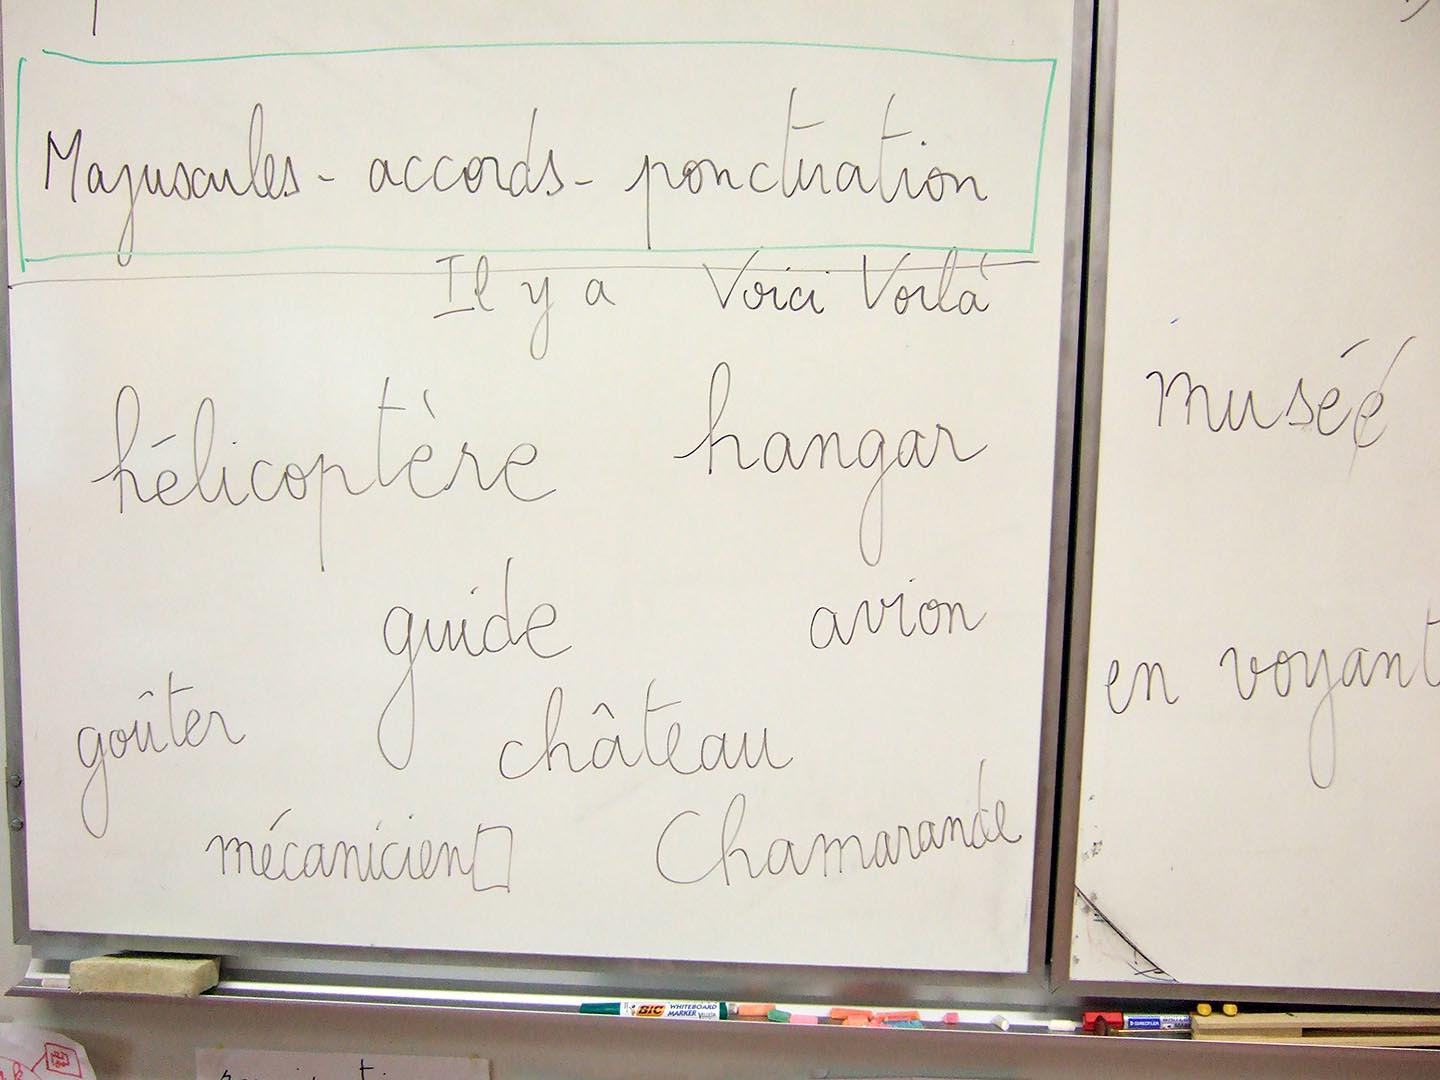 Majuscules - accords - ponctuation
Il y a Voici Voilà
hélicoptère hangar
musée
guide avion
en voyant
goûter château
mécanicien Chamarande
BIC WHITEBOARD MARKER
STAEDTLER